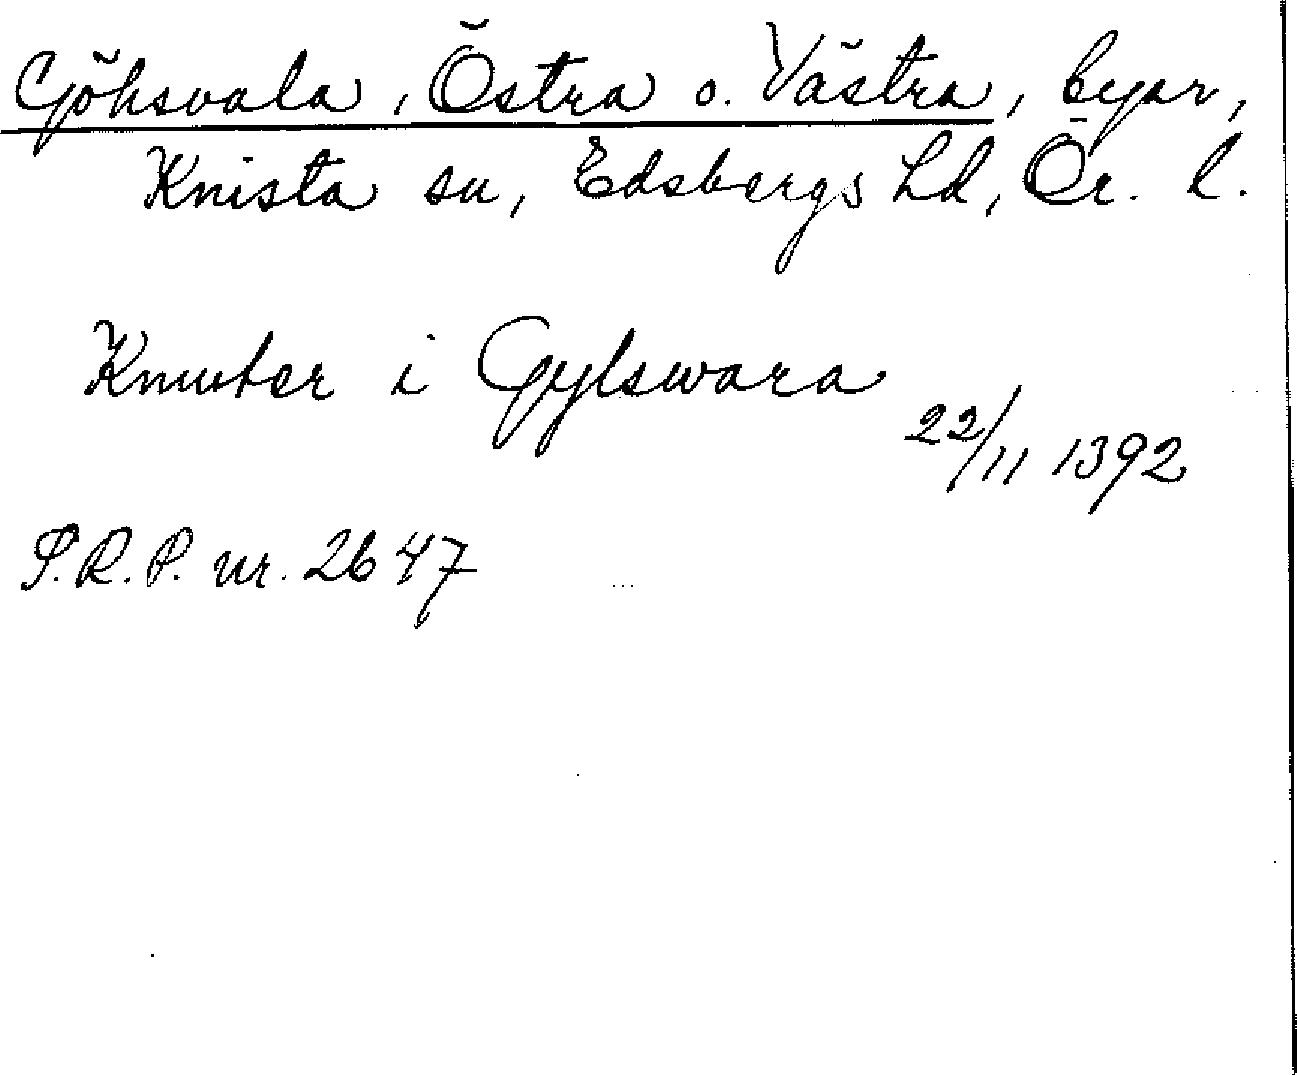 Göksvala, Östra o. Västra, byar,
Knista sn, Edsbergs hd, Ör. l.
Knuter i Gylswara
22/11 1392
S.R.P. nr. 2647